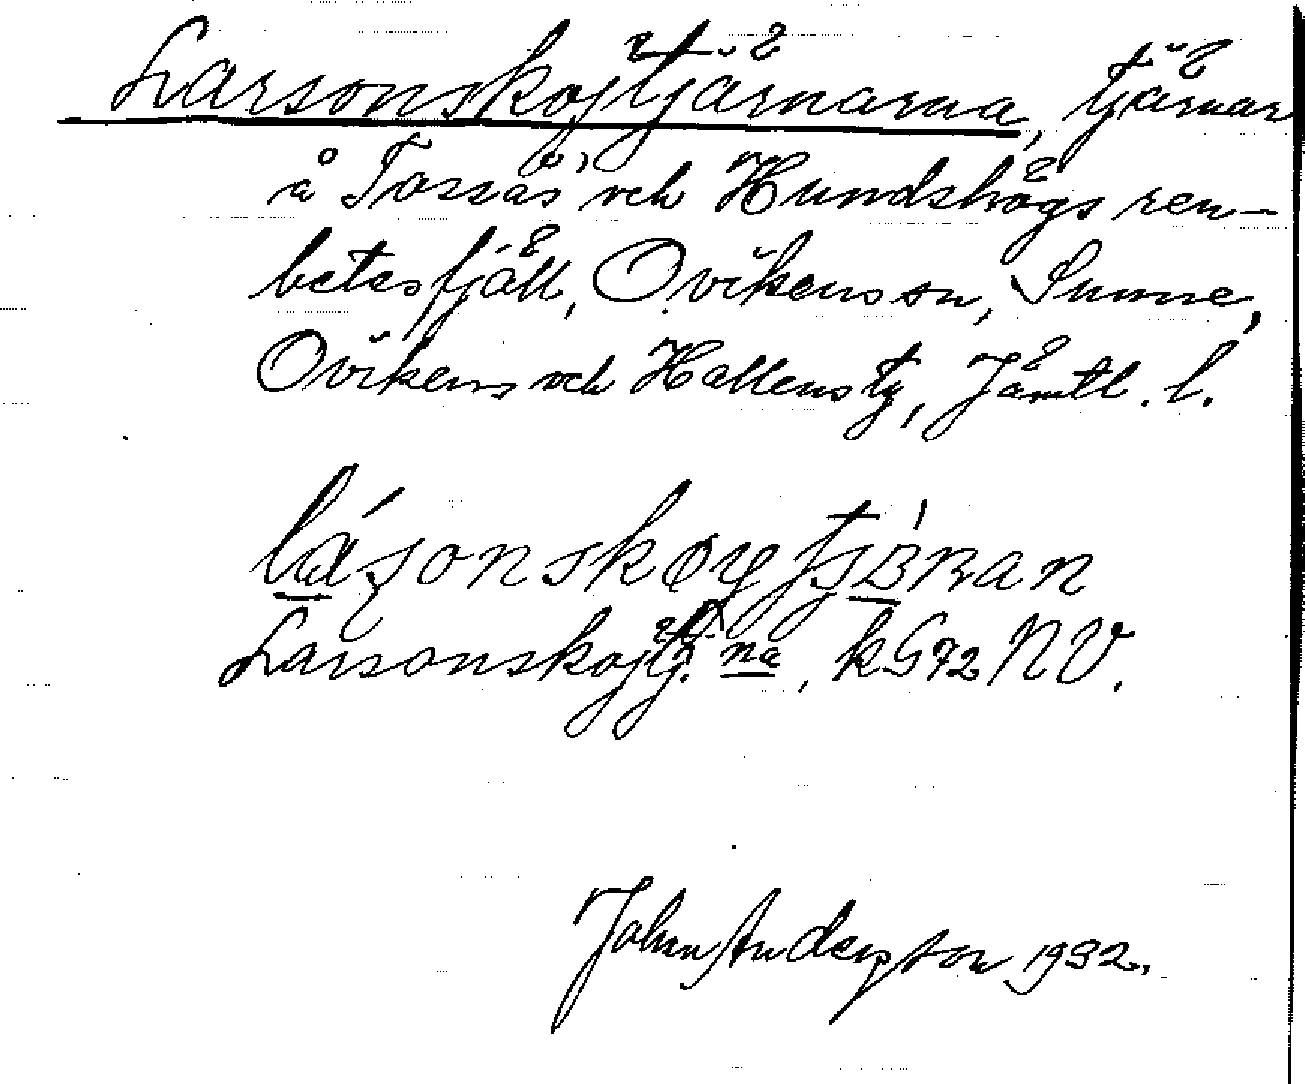 Larsonskojtjärnarna, tjärnar
å Tossås och Hundshögs ren-
betesfjäll, Ovikens sn, Sunne,
Ovikens och Hallens tg, Jämtl. l.
Larsonskojtj.na, kG72 NV.
John Anderson 1932.